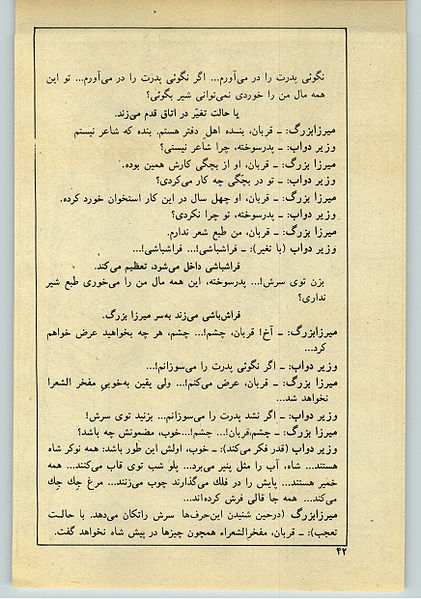 نگوئی پدرت را در می‌آورم... اگر نگوئی پدرت را در می‌آورم... تو این
همه مال من را خوردی نمی‌توانی شیر بگوئی؟
با حالت تغیّر در اتاق قدم می‌زند.
میرزابزرگ: ــ قربان، بنده اهل دفتر هستم. بنده که شاعر نیستم
وزیر دواب: ــ پدرسوخته، چرا شاعر نیستی؟
میرزا بزرگ: ــ قربان، او از بچگی کارش همین بوده.
وزیر دواب: ــ تو در بچگی چه کار می‌کردی؟
میرزا بزرگ: ــ قربان، او چهل سال در این کار استخوان خورد کرده.
وزیر دواب: ــ پدرسوخته، تو چرا نکردی؟
میرزا بزرگ: ــ قربان، من طبع شعر ندارم.
وزیر دواب (با تغیر): ــ فراشباشی!... فراشباشی!...
فراشباشی داخل می‌شود، تعظیم می‌کند.
بزن توی سرش!... پدرسوخته، این همه مال من را می‌خوری طبع شیر
نداری؟
فراش‌باشی می‌زند به‌سر میرزا بزرگ.
میرزابزرگ: ــ آخ! قربان، چشم!... چشم، هر چه بخواهید عرض خواهم
کرد...
وزیر دواب: ــ اگر نگوئی پدرت را می‌سوزانم!...
میرزا بزرگ: ــ قربان، عرض می‌کنم!... ولی یقین به‌خوبیِ مفخر الشعرا
نخواهد شد...
وزیر دواب: ــ اگر نشد پدرت را می‌سوزانم... بزنید توی سرش!
میرزا بزرگ: ــ چشم،قربان!... چشم!...خوب، مضمونش چه باشد؟
وزیر دواب (قدر فکر می‌کند): ــ خوب، اولش این طور باشد: همه نوکر شاه
هستند... شاه، آب را مثل پنیر می‌برد... پلو شب توی قاب می‌کنند... همه
خمیر هستند... پایش را در فلك می‌گذارند چوب می‌زنند... مرغ چك چك
می‌کند... همه جا قالی فرش کرده‌اند...
میرزابزرگ (درحین شنیدن این‌حرف‌ها سرش راتکان می‌دهد. با حالت
تعجب): ــ قربان، مفخرالشعراء همچون چیزها در پیش شاه نخواهد گفت.
۴۲